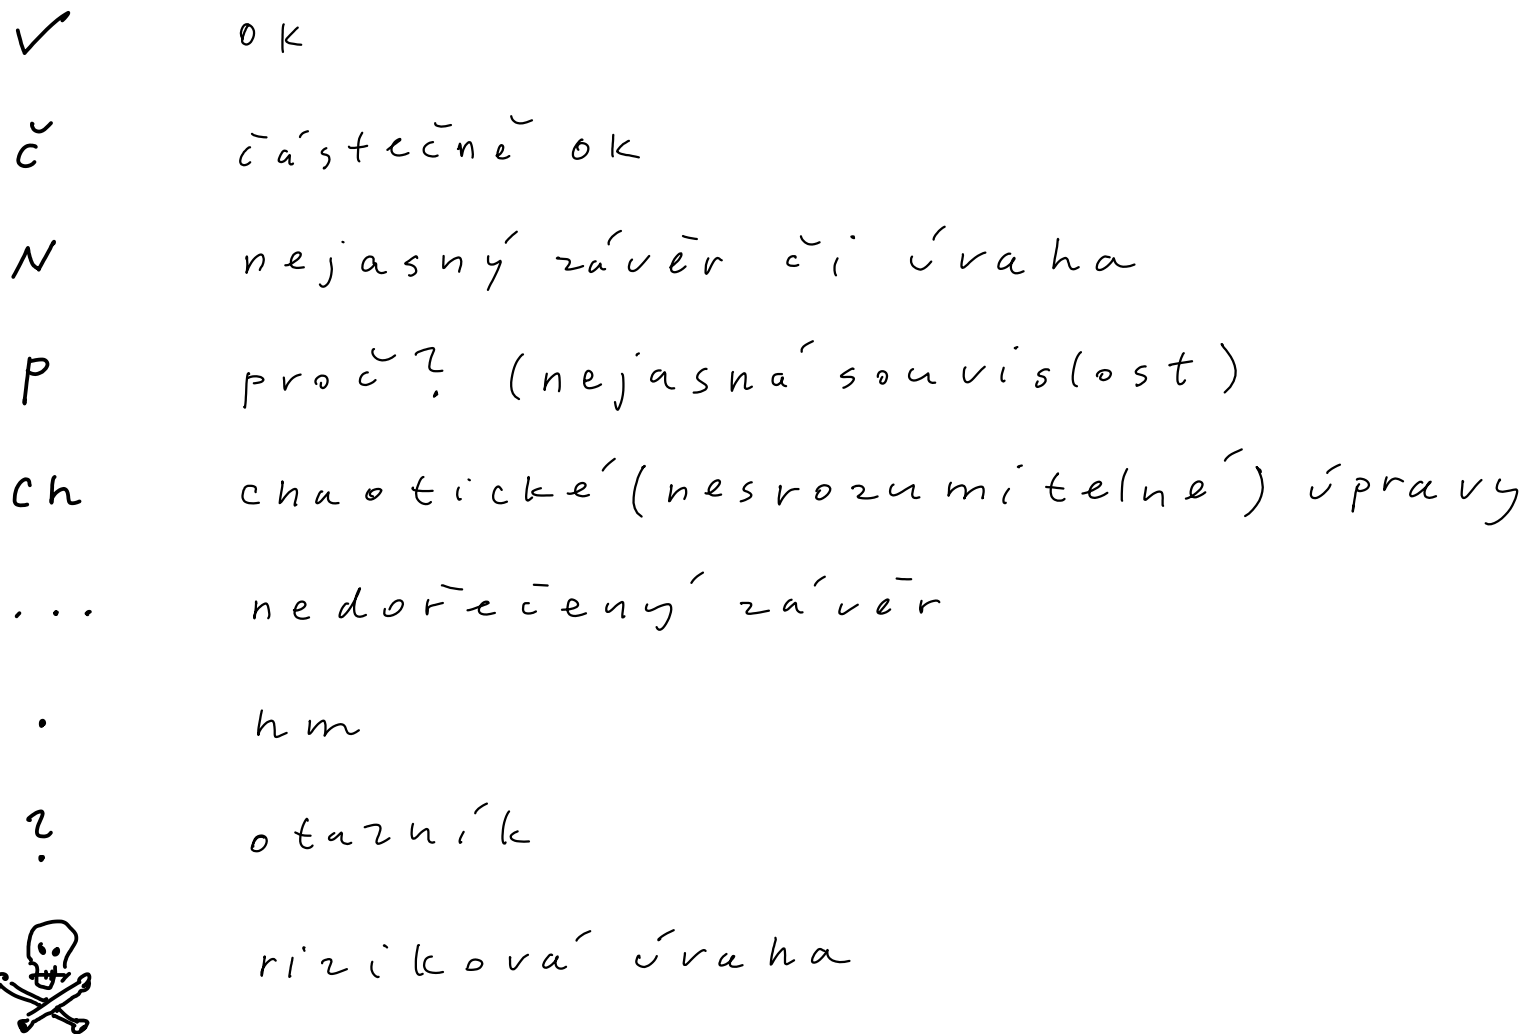 ✓ ok
č částečně ok
N nejasný závěr či úvaha
P proč? (nejasná souvislost)
ch chaotické (nesrozumitelné) úpravy
... nedořečený závěr
. hm
? otazník
☠ riziková úvaha